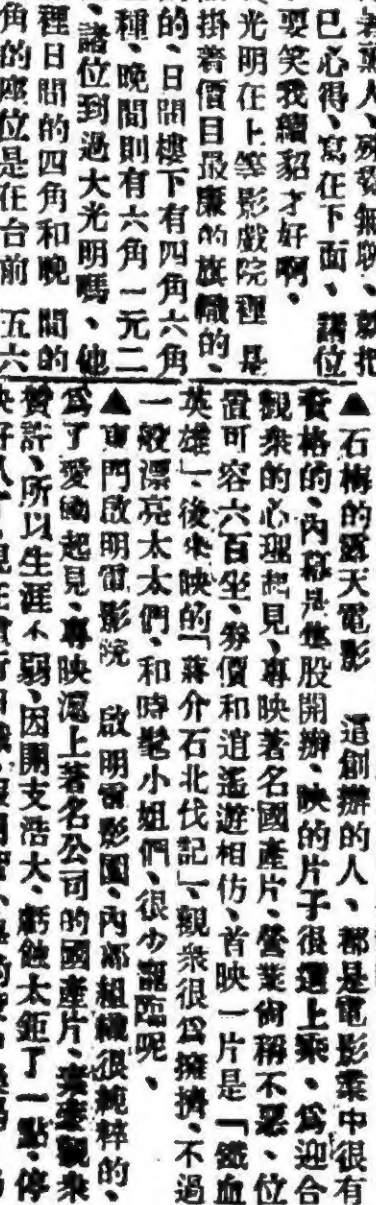 已心得、寫在下面、諸位
要笑我續貂才好啊。
光明在上等影戲院裡 是
掛着價目最廉的旗幟的、
的、日間樓下有四角六角
種、晚間則有六角一元二
、諸位到過大光明嗎、他
裡日間的四角和晚 間的
角的座位是在台前 五六
▲石梅的露天電影 這創辦的人、都是電影業中很有
資格的、內幕是集股開辦、映的片子很選上乘、爲迎合
觀衆的心理起見、專映著名國產片、營業尙稱不惡、位
置可容六百坐、券價和逍遙遊相仿、首映一片是「鐵血
英雄」、後來映的「蔣介石北伐記」、觀衆很爲擁擠、不過
一般漂亮太太們、和時髦小姐們、很少寵臨呢、
▲東門啟明電影院 啟明電影園、內部組織很純粹的、
爲了愛國起見、專映滬上著名公司的國產片、觀衆
贊許、所以生涯不弱、因開支浩大、虧蝕太鉅了一點、停